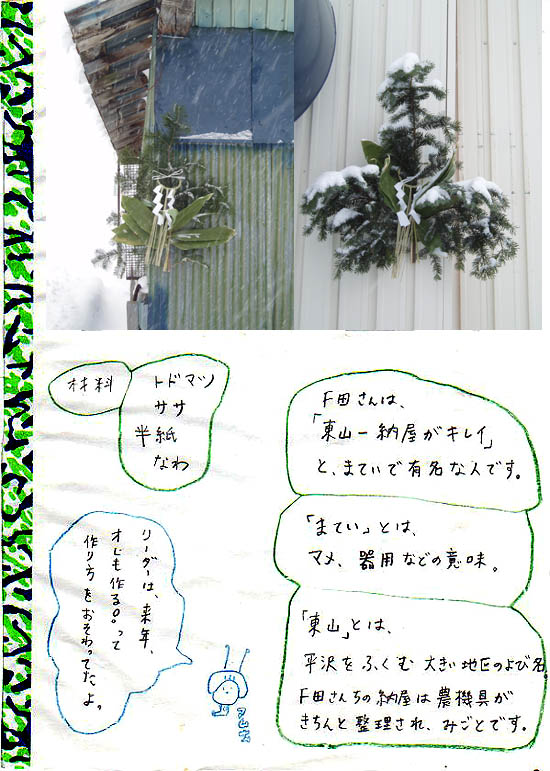 材料
トドマツ
ササ
半紙
なわ
F田さんは、
「東山一納屋がキレイ」
と、まていで有名な人です。
「まてい」とは、
マメ、器用などの意味。
「東山」とは、
平沢をふくむ大きい地区のよび名
F田さんちの納屋は農機具が
きちんと整理され、みごとです。
リーダーは、来年、
オレも作る。って
作り方をおそわってたよ。